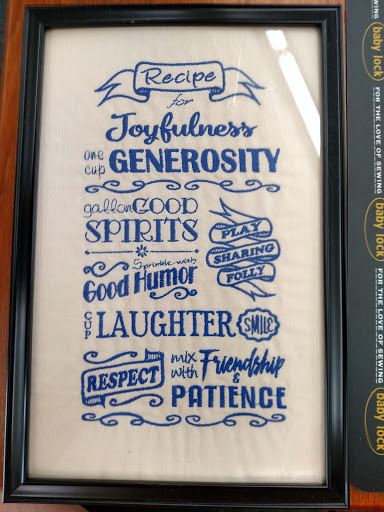 Recipe
for
Joyfulness
one cup GENEROSITY
gallon GOOD
SPIRITS
PLAY
SHARING
FOLLY
sprinkle with
Good Humor
CUP LAUGHTER SMILE
RESPECT
mix with Friendship
&
PATIENCE
baby lock
FOR THE LOVE OF SEWING
baby lock
FOR THE LOVE OF SEWING
baby lock
FOR THE LOVE OF SEWING
baby lock